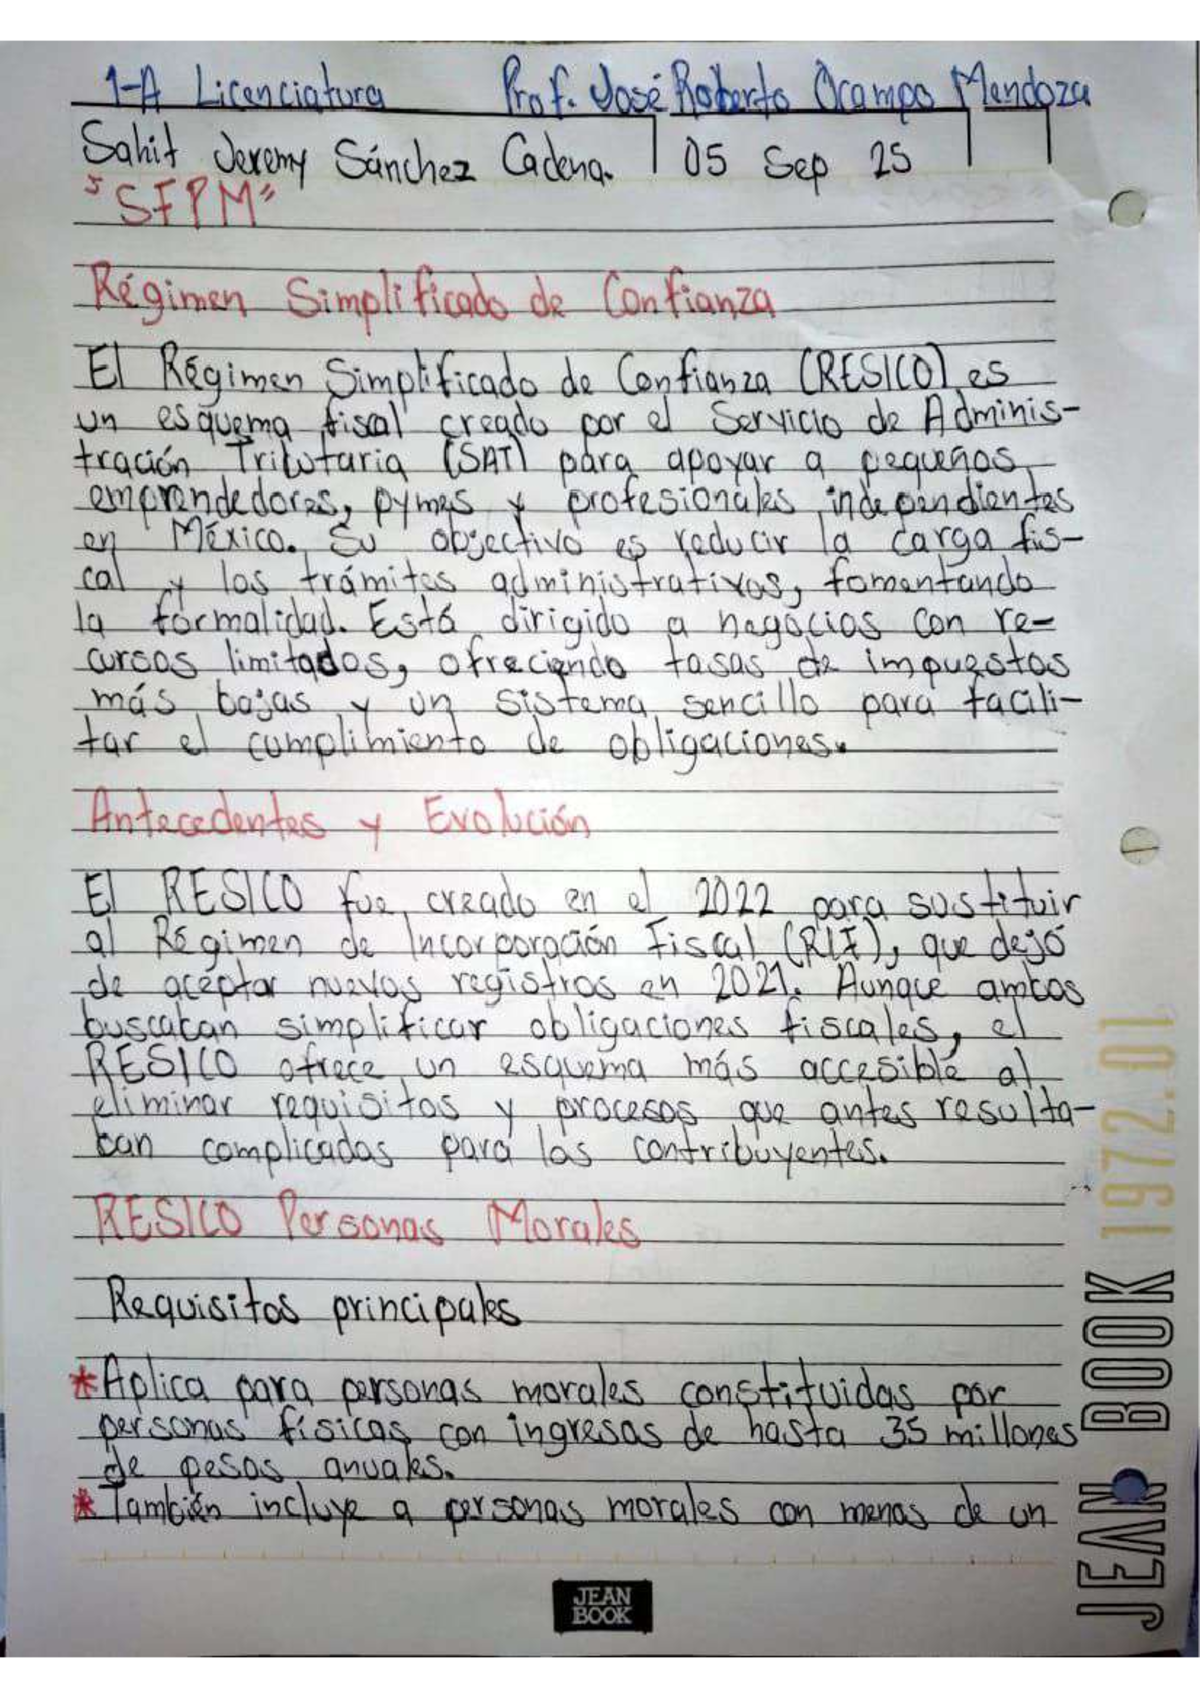 1-A Licenciatura Prof. José Roberto Ocampo Mendoza
Sahit Jeremy Sánchez Cadena. 05 Sep 25
"SFPM"
Régimen Simplificado de Confianza
El Régimen Simplificado de Confianza (RESICO) es
un esquema fiscal creado por el Servicio de Adminis-
tración Tributaria (SAT) para apoyar a pequeños
emprendedores, pymes y profesionales independientes
en México. Su objectivo es reducir la carga fis-
cal y los trámites administrativos, fomentando
la formalidad. Está dirigido a negocios con re-
cursos limitados, ofreciendo tasas de impuestos
más bajas y un sistema sencillo para facili-
tar el cumplimiento de obligaciones.
Antecedentes y Evolución
El RESICO fue creado en el 2022 para sustituir
al Régimen de Incorporación Fiscal (RIF), que dejó
de aceptar nuevos registros en 2021. Aunque ambos
buscaban simplificar obligaciones fiscales, el
RESICO ofrece un esquema más accesible al
eliminar requisitos y procesos que antes resulta-
ban complicados para los contribuyentes.
RESICO Personas Morales
Requisitos principales
*Aplica para personas morales constituidas por
personas físicas con ingresos de hasta 35 millones
de pesos anuales.
*También incluye a personas morales con menos de un
JEAN BOOK 1972.01
JEAN
BOOK